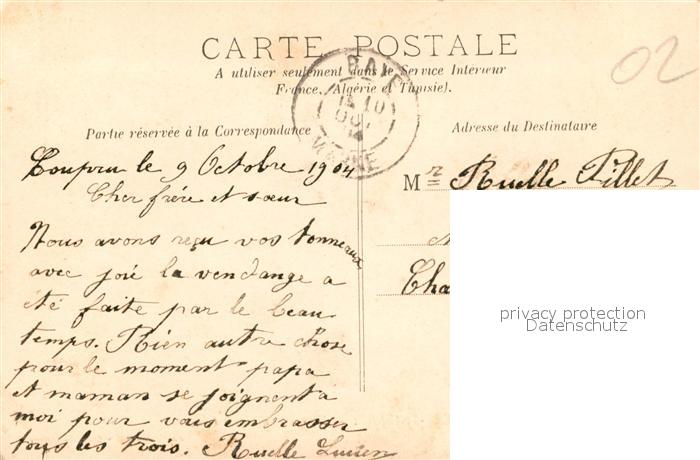 CARTE POSTALE
A utiliser seulement dans le Service Intérieur
France, Algérie et Tunisie).
Partie réservée à la Correspondance
Adresse du Destinataire
BAYE
10
OCT
04
MARNE
02
le 9 Octobre 1904
Cher frére et sœur
Nous avons reçu vos tonneaux
avec joie la vendange a
été faite par le beau
temps. Rien autre chose
pour le moment papa
et maman se joignent a
moi pour vous embrasser
tous les trois. Ruelle Lucien
Mr Ruelle Pillet
Cha
privacy protection
Datenschutz